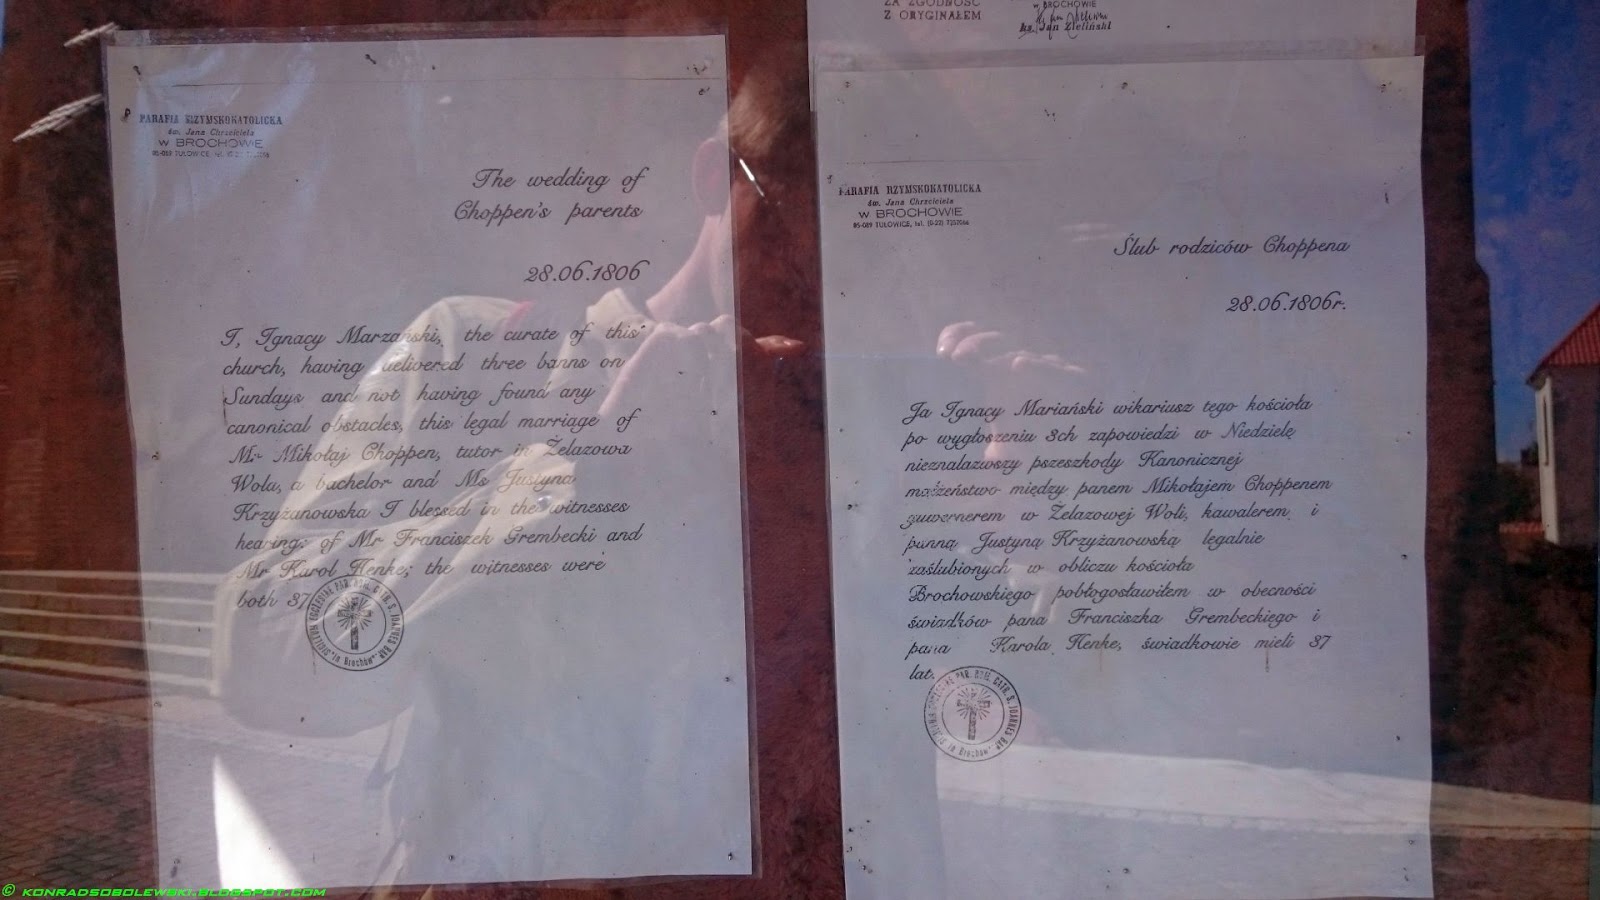 ZA ZGODNOŚĆ
Z ORYGINAŁEM
W BROCHOWIE
ks. Jan Zieliński
PARAFIA RZYMSKOKATOLICKA
św. Jana Chrzciciela
W BROCHOWIE
The wedding of
Choppen's parents
28.06.1806
I, Ignacy Marzański, the curate of this
church, having delivered three banns on
Sundays and not having found any
canonical obstacles, this legal marriage of
Mr Mikołaj Choppen, tutor in Żelazowa
Wola, a bachelor and Ms Justyna
Krzyżanowska I blessed in the witnesses
hearing: of Mr Franciszek Grembecki and
Mr Karol Henke; the witnesses were
both 37
SIGILLUM ECCLESIAE PAR. ROM. CATH. S. JOANNES BAP. "in Brochów"
PARAFIA RZYMSKOKATOLICKA
św. Jana Chrzciciela
W BROCHOWIE
05-089 TUŁOWICE, tel. (0-22) 7257066
Ślub rodziców Choppena
28.06.1806r.
Ja Ignacy Mariański wikariusz tego kościoła
po wygłoszeniu 3ch zapowiedzi w Niedzielę
nieznalazwszy pszeszkody Kanonicznej
małżeństwo między panem Mikołajem Choppenem
guwernerem w Żelazowej Woli, kawalerem i
panną Justyną Krzyżanowską legalnie
zaślubionych w obliczu kościoła
Brochowskiego pobłogosławiłem w obecności
świadków pana Franciszka Grembeckiego i
pana Karola Henke, świadkowie mieli 37
lat.
SIGILLUM ECCLESIAE PAR. ROM. CATH. S. JOANNES BAP. "in Brochów"
© KONRADSOBOLEWSKI.BLOGSPOT.COM